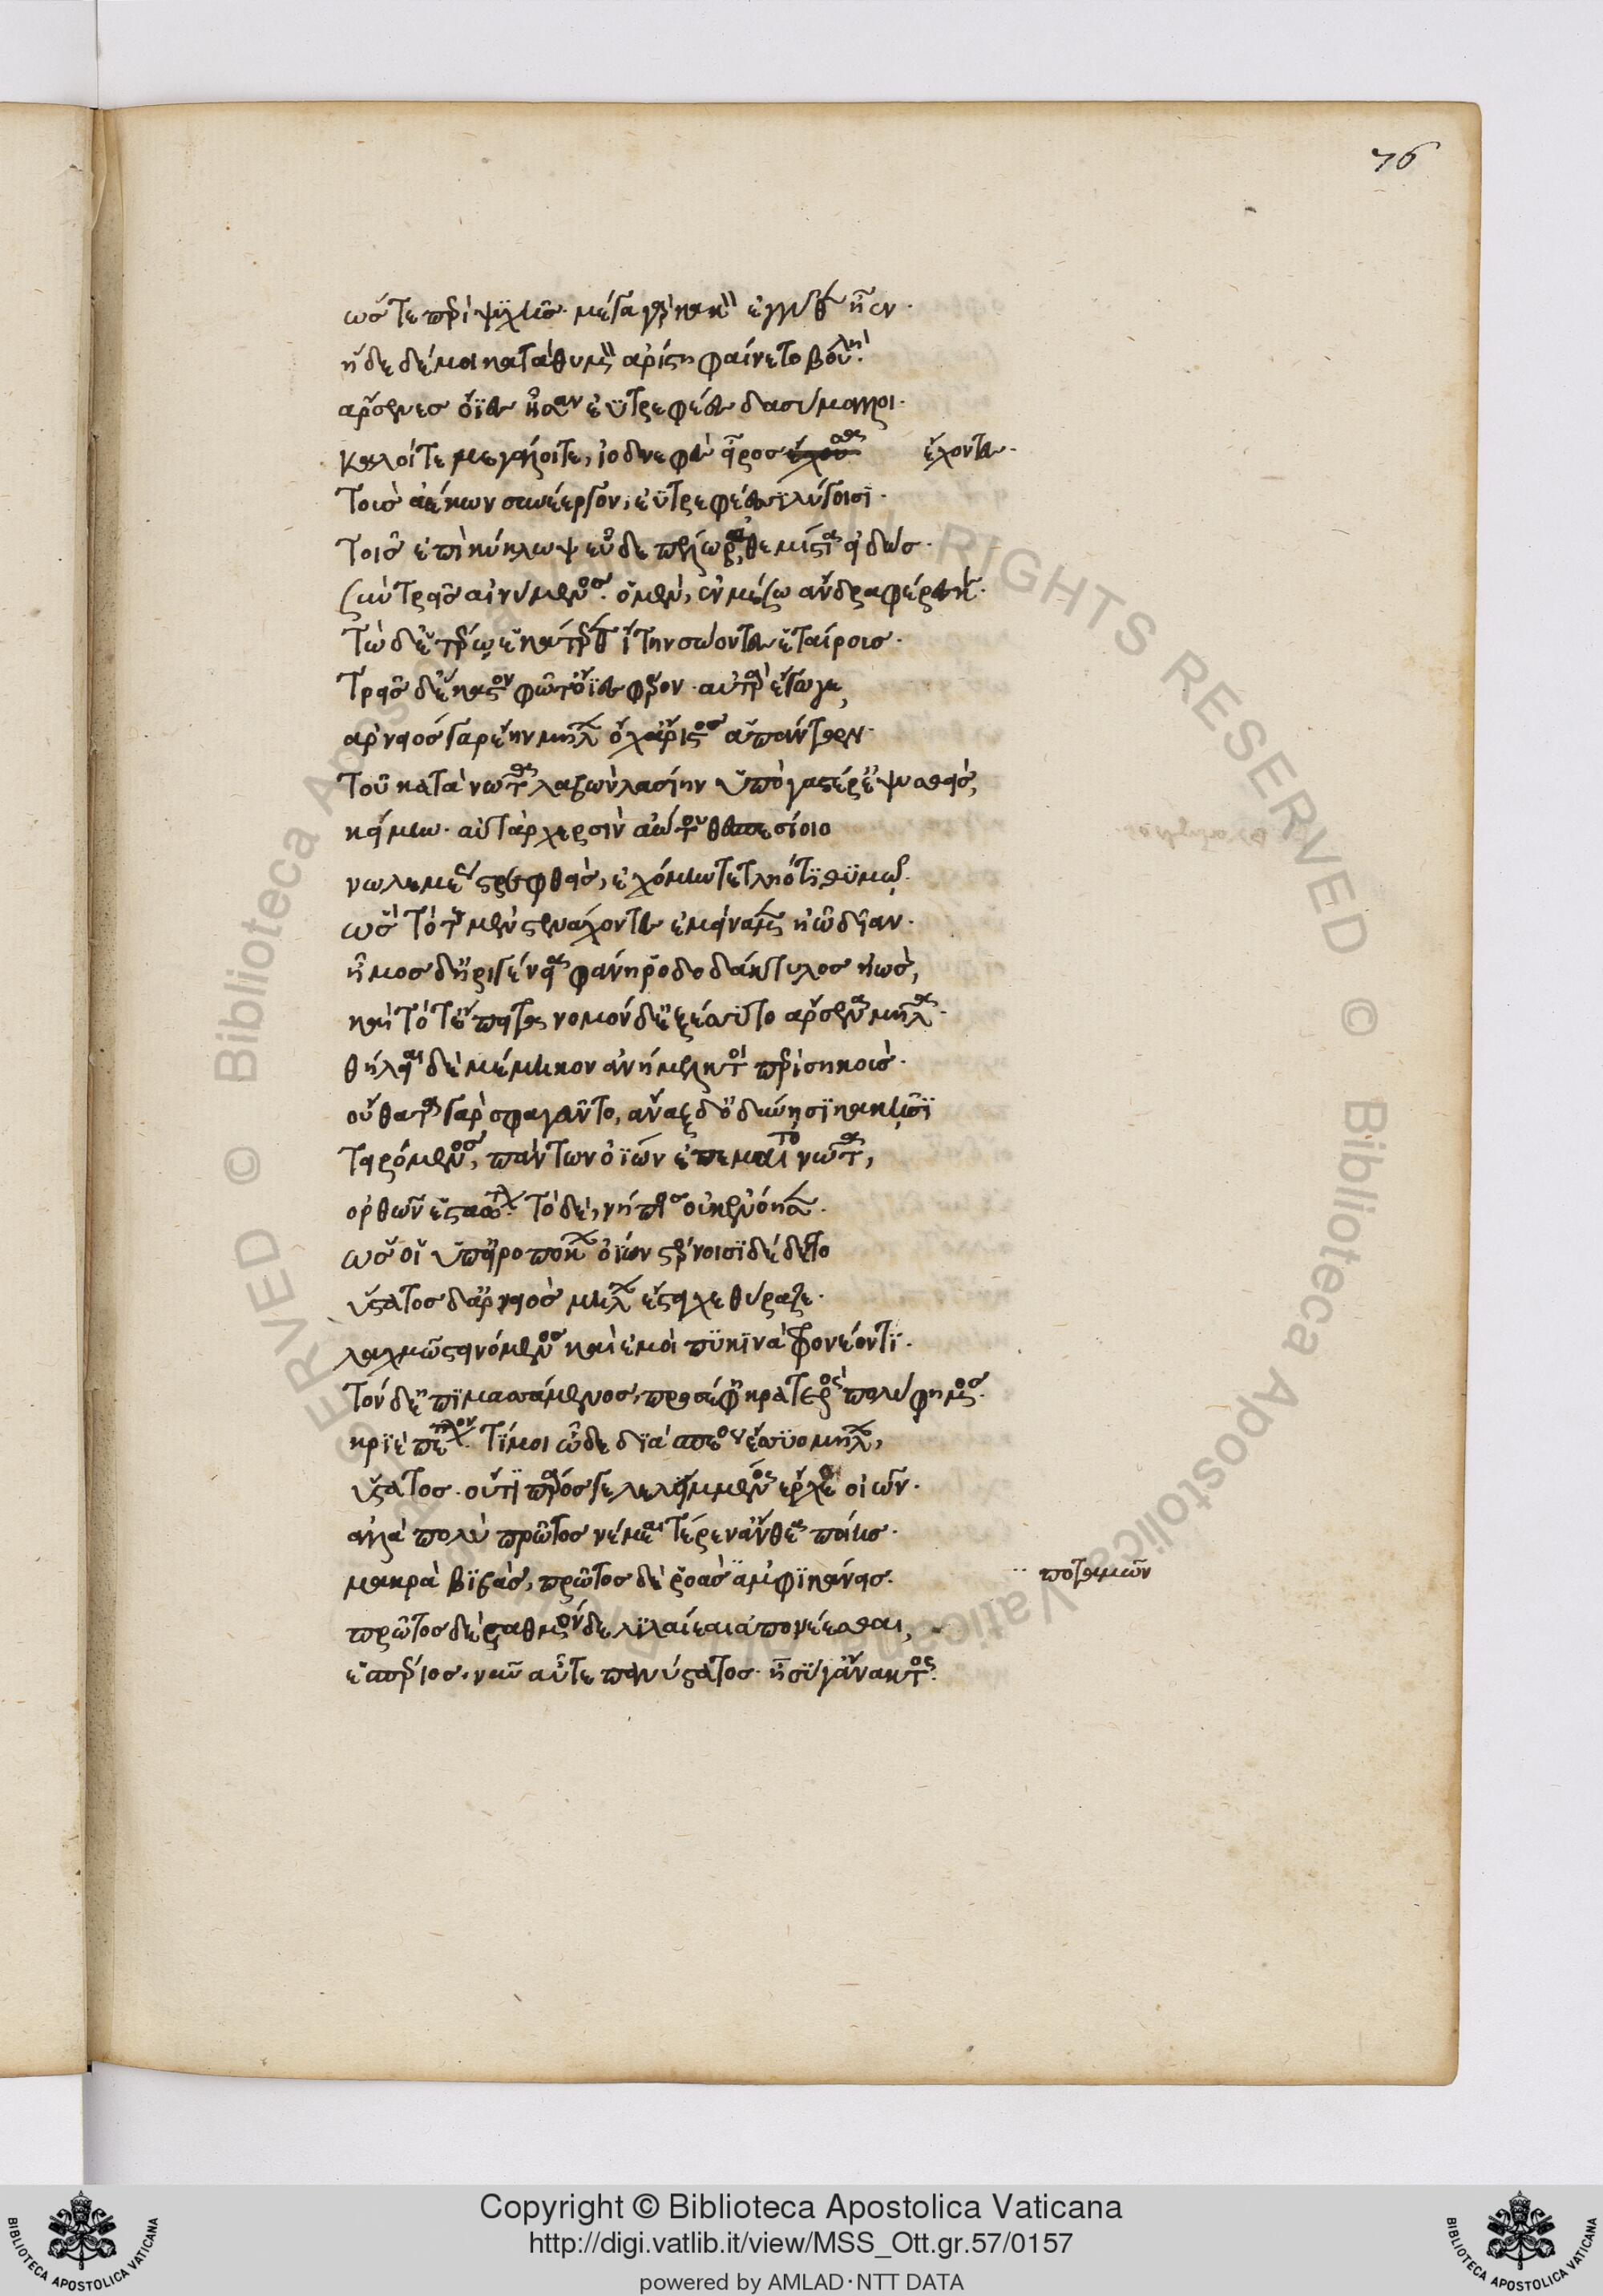 76
ὥς τε περὶ ψυχῆς· μέγα γὰρ κακὸν ἐγγύθεν ἦεν·
ἥδε δέ μοι κατὰ θυμὸν ἀρίστη φαίνετο βουλή·
ἄρσενες ὄιες ἦσαν ἐϋτρεφέες δασύμαλλοι·
καλοί τε μεγάλοι τε, ἰοδνεφὲς εἶρος ἔχοντες·
τοὺς ἀκέων συνέεργον, ἐϋστρεφέεσσι λύγοισι·
τοῖς ἐπὶ κύκλωψ εὗδε πέλωρ, ἀθεμίστια εἰδώς·
σὺν τρεῖς αἰνύμενος· ὁ μὲν, ἐν μέσω ἄνδρα φέρεσκεν·
τὼ δ' ἑτέρω ἑκάτερθεν ἴτην σώοντες ἑταίρους·
τρεῖς δὲ ἕκαστον φῶτ' ὄιες φέρον· αὐτὰρ ἔγωγε,
ἀρνειὸς γὰρ ἔην μήλων ὄχ' ἄριστος ἁπάντων·
τοῦ κατὰ νῶτα λαβὼν λασίην ὑπὸ γαστέρ' ἐλυσθεὶς,
κείμην· αὐτὰρ χερσὶν ἀώτου θεσπεσίοιο
νωλεμέως στρεφθεὶς, ἐχόμην τετληότι θυμῷ·
ὣς τότε μὲν στενάχοντες ἐμείναμεν ἠῶ δῖαν·
ἦμος δ' ἠριγένεια φάνη ῥοδοδάκτυλος ἠὼς,
καὶ τότ' ἔπειτα νομόνδ' ἐξέσσυτο ἄρσενα μῆλα·
θήλειαι δὲ μέμηκον ἀνήμελκτοι περὶ σηκούς·
οὔθατα γὰρ σφαραγεῦντο, ἄναξ δ' ὀδύνησι κακῇσι
τειρόμενος, πάντων ὀΐων ἐπεμαίετο νῶτα,
ὀρθῶν ἑσταότων· τὸ δὲ, νήπιος οὐκ ἐνόησεν·
ὥς οἱ ὑπ' εἰροπόκων ὀΐων στέρνοισι δέδεντο
ὕστατος δ' ἀρνειὸς μήλων ἔστειχε θύραζε·
λαχμῷ στεινόμενος καὶ ἐμοὶ πυκινὰ φρονέοντι·
τὸν δ' ἐπιμασσάμενος, προσέφη κρατερὸς πολύφημος·
κριὲ πέπον· τί μοι ὧδε διὰ σπέος ἔσσυο μήλων,
ὕστατος· οὔτι πάρος γε λελειμμένος ἔρχεαι οἰῶν·
ἀλλὰ πολὺ πρῶτος νέμεαι τέρεν ἄνθεα ποίης·
μακρὰ βιβὰς, πρῶτος δὲ ῥοὰς ἀμφικάνεις· ποταμῶν
πρῶτος δὲ σταθμόνδε λιλαίεαι ἀπονέεσθαι,
ἑσπέριος· νῦν αὖτε πανύστατος· ἦ σύ γ' ἄνακτος·
Copyright © Biblioteca Apostolica Vaticana
http://digi.vatlib.it/view/MSS_Ott.gr.57/0157
powered by AMLAD·NTT DATA